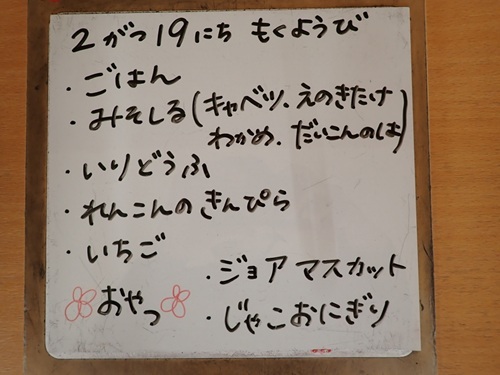 2がつ19にち もくようび
・ごはん
・みそしる(キャベツ、えのきたけ
わかめ、だいこんのは)
・いりどうふ
・れんこんのきんぴら
・いちご
おやつ
・ジョア マスカット
・じゃこおにぎり